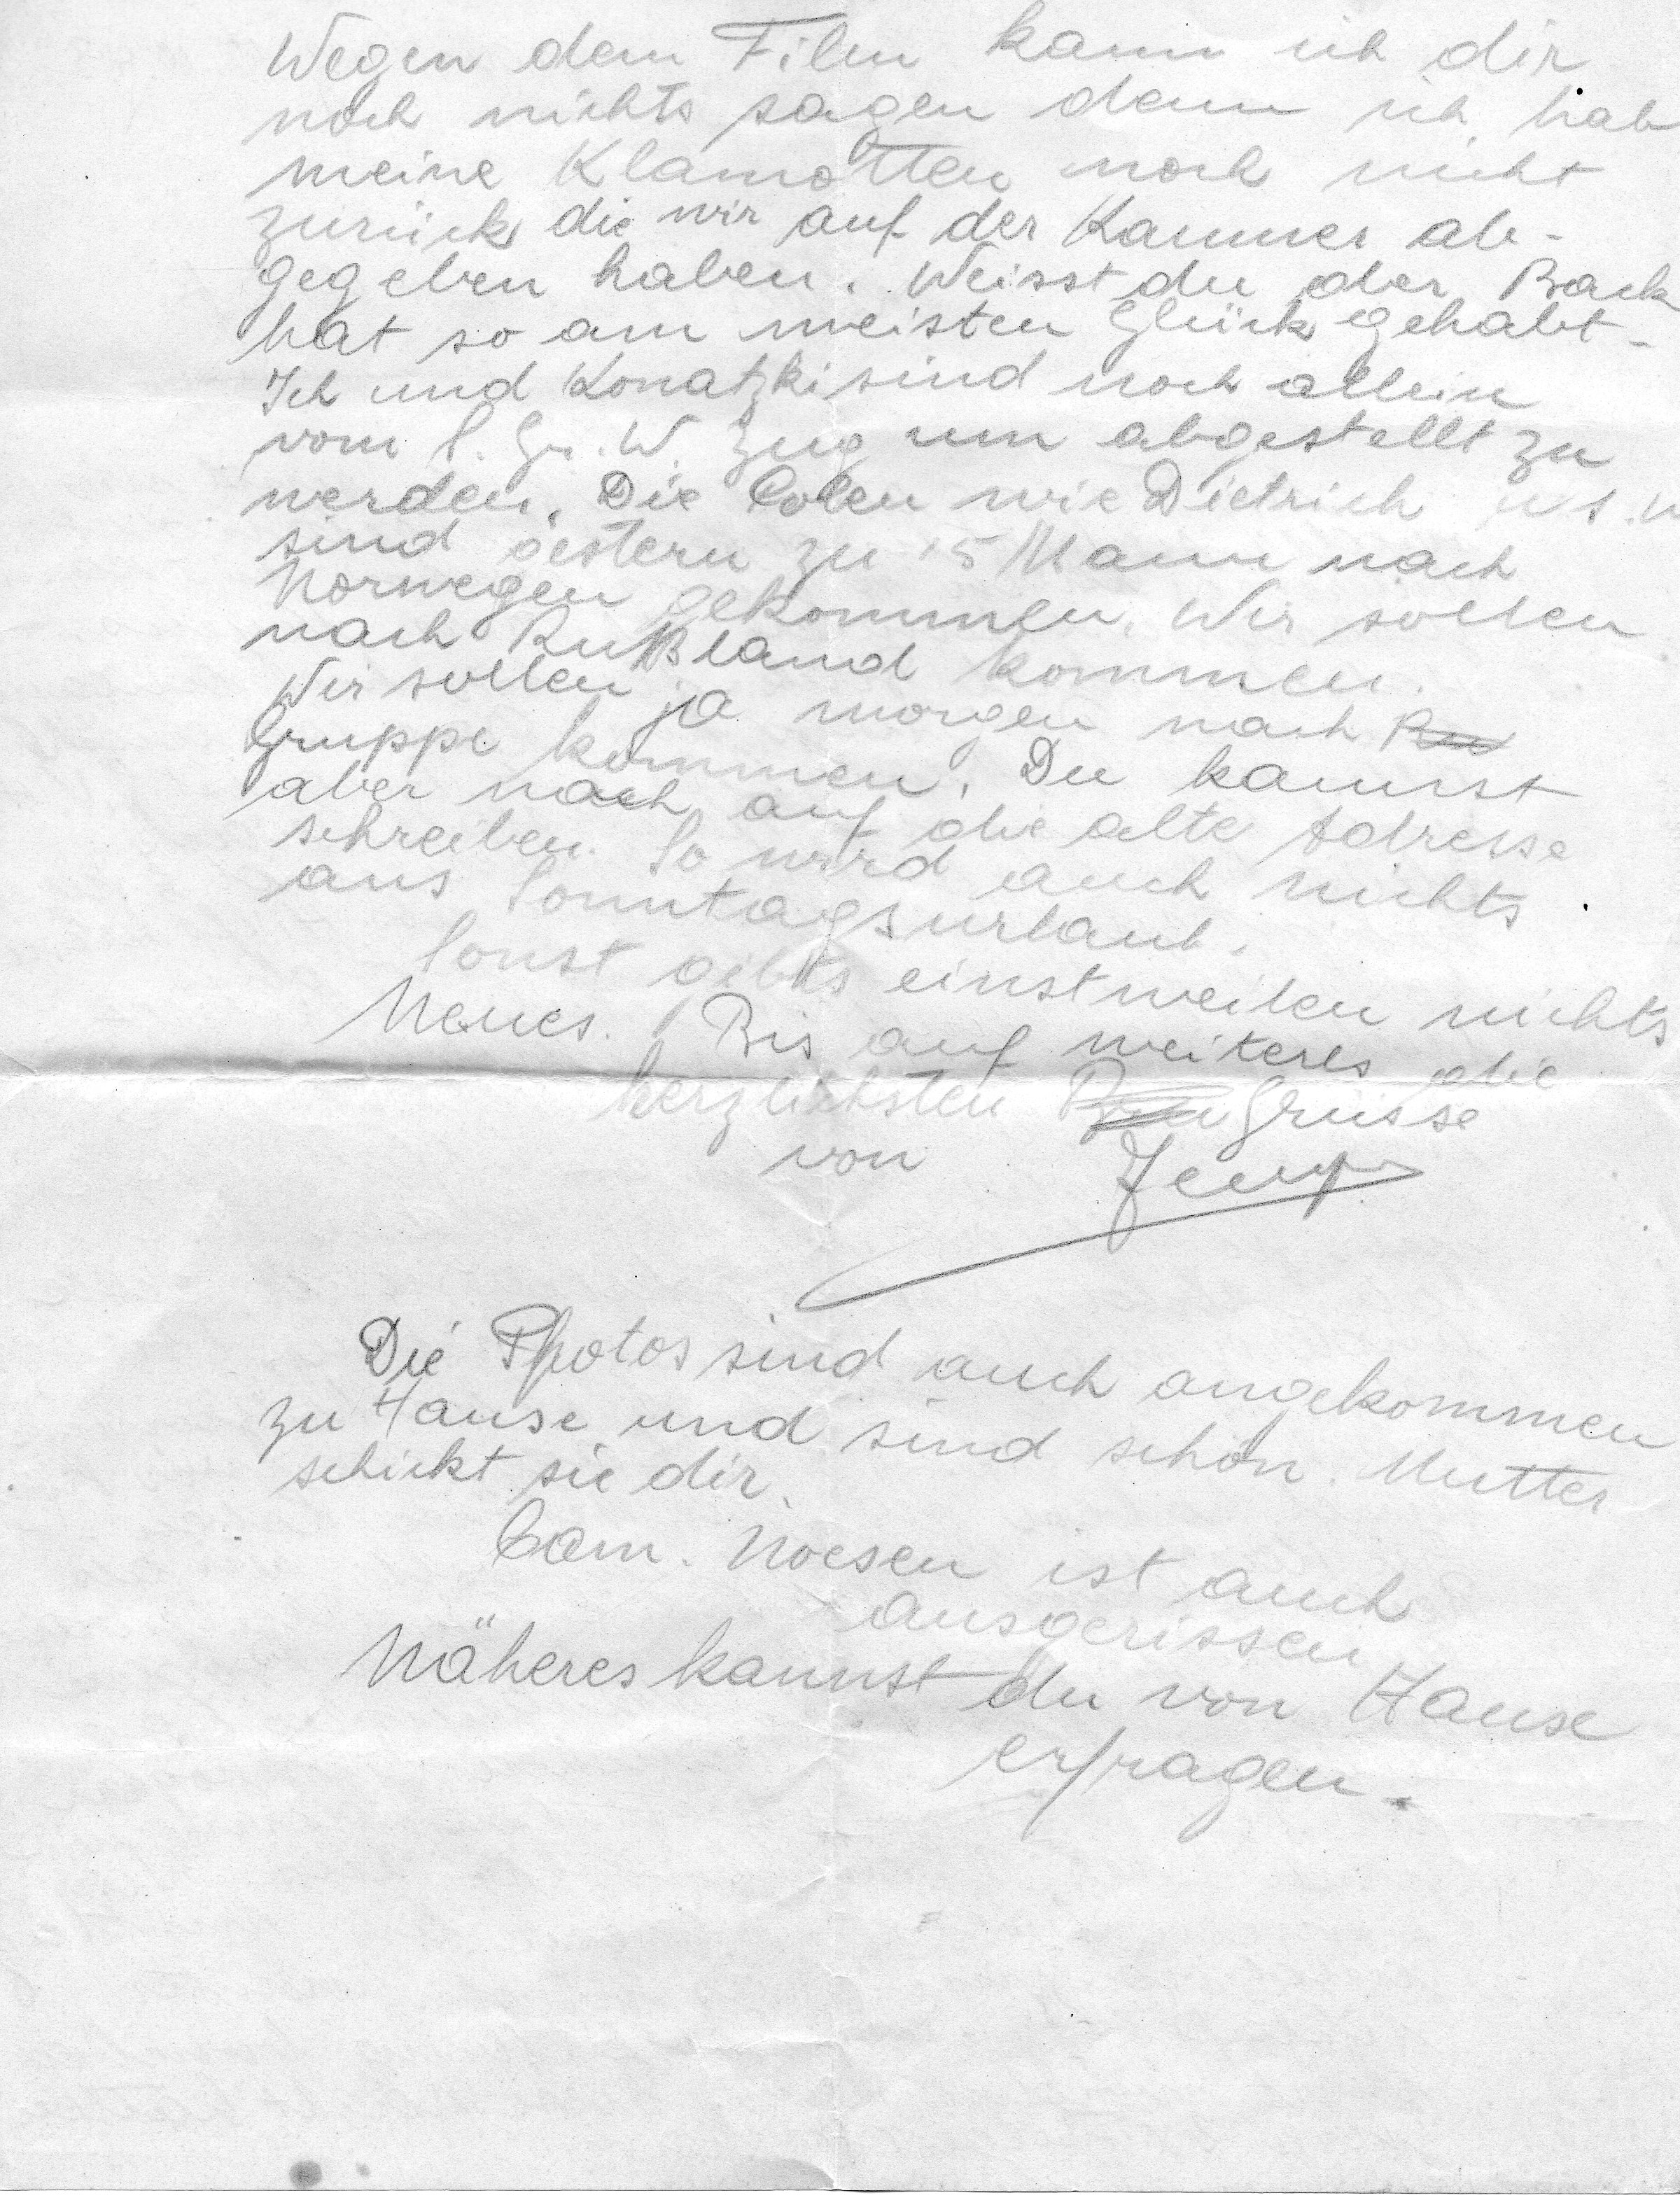 Wegen dem Film kann ich dir
noch nichts sagen denn ich hab
meine Klamotten noch nicht
zurück die wir auf der Kammer ab-
gegeben haben. Weisst du der Back
hat so am meisten Glück gehabt.
Ich und Konatzki sind noch allein
vom S. Gr. W. Zug um abgestellt zu
werden. Die Polen wie Dietrich u s. w
sind gestern zu 15 Mann nach
Norwegen gekommen. Wir sollen
nach Rußland kommen.
Wir sollen ja morgen nach
Gruppe kommen. Du kannst
aber noch auf die alte Adresse
schreiben. So wird auch nichts
aus Sonntagsurlaub.
Sonst gibts einstweilen nichts
Neues. Bis auf weiteres die
herzlichsten Grüsse
von Jemp
Die Photos sind auch angekommen
zu Hause und sind schön. Mutter
schickt sie dir.
Cam. Noesen ist auch
ausgerissen
Näheres kannst du von Hause
erfragen.